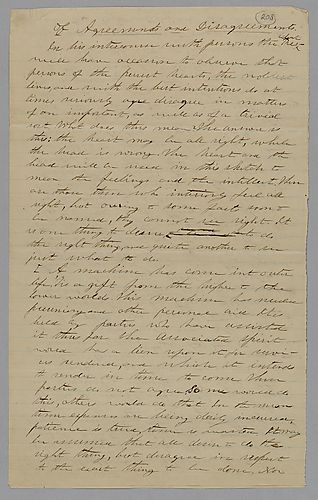 Of Agreements and Disagreements. 208
In his intercourse with persons the
will have occasion to observe that
persons of the purest hearts, the noblest
lives, and with the best intentions do at
times seriously disagree in matters
of an important, as well as of a trivial
sort. What does this mean? The answer is
this: the heart may be all right, while
the head is wrong. The heart and the
head will be used in this sketch to
mean the feelings and the intellect. There
are those then who intuitively feel all
right, but owing to some fact soon to
be named, they cannot see right. It
is one thing to desire to do
the right thing, and quite another to see
just what to do.
A machine has come into outer
life. 'Tis a gift from the higher to the
lower world. This machine has needed
pecuniary and other personal aid. It is
held by parties who have asserted
it thus far. The Associated Spirit
world has a lien upon it for services
rendered, and which it intends
to render in time to come. These
parties do not agree. Some would do
this, others would do that. In the mean
time expenses are being daily incurred,
patience is tried, time is wasted. It may
be assumed that all desire to do the
right thing, but disagree in respect
to the exact thing to be done. Now